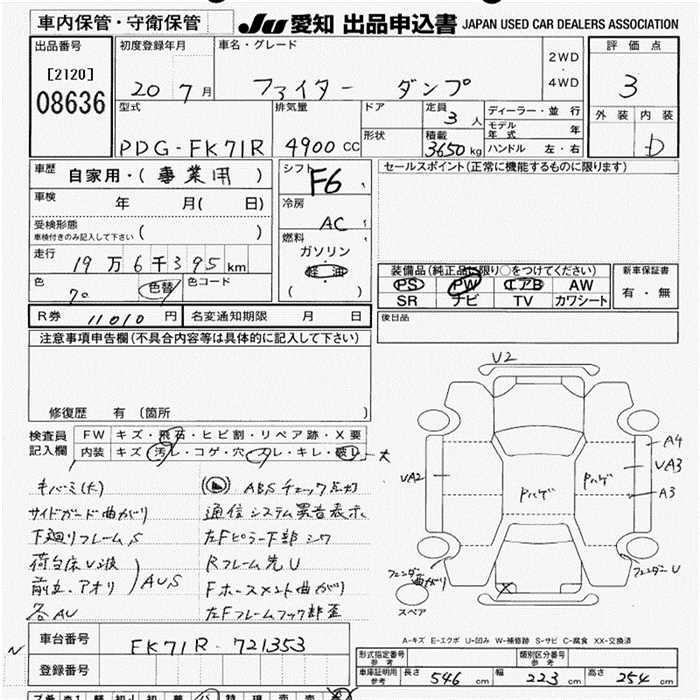 車内保管・守衛保管
JU 愛知 出品申込書 JAPAN USED CAR DEALERS ASSOCIATION
出品番号
[2120]
08636
初度登録年月
20 7月
車名・グレード
ファイター ダンプ
2WD
・
4WD
評価点
3
外装 内装
D
型式
PDG-FK71R
排気量
4900 CC
ドア
形状
定員
3人
積載
3650 kg
ディーラー・並行
モデル年式 年
ハンドル 左・右
車歴
自家用・(事業用)
車検
年 月( 日)
受検形態
車検付きのみ記入して下さい ( )
走行
19万6千395 km
色
70
色替
色コード
シフト
F6
冷房
AC
燃料
ガソリン
軽油
( )
セールスポイント(正常に機能するものに限ります)
装備品(純正品に限り○をつけてください)
PS PW エアB AW
SR ナビ TV カワシート
新車保証書
有・無
R券 11010 円
名変通知期限 月 日
後日品
注意事項申告欄(不具合内容等は具体的に記入して下さい)
修復歴 有(箇所 )
検査員
記入欄
FW キズ・飛石・ヒビ割・リペア跡・X要
内装 キズ・汚レ・コゲ・穴・スレ・キレ・破レ 大
キバミ(大)
サイドガード曲がり
下廻りフレームS
荷台床U波
前立、アオリ AU,S
各AU
ABSチェック点灯
通信システム異音表示
左Fピラー下部シワ
Rフレーム先U
Fホースメント曲がり
左Fフレームフック部歪
V2
UA2
Pハゲ
Pハゲ
A4
UA3
A3
フェンダー曲がり
フェンダーU
X
スペア
A-キズ E-エクボ U-凹み W-補修跡 S-サビ C-腐食 XX-交換済
車台番号
FK71R-721353
登録番号
型式指定番号
参考
類別区分番号
参考
車庫証明用
参考
長さ 546 cm 幅 223 cm 高さ 254 cm